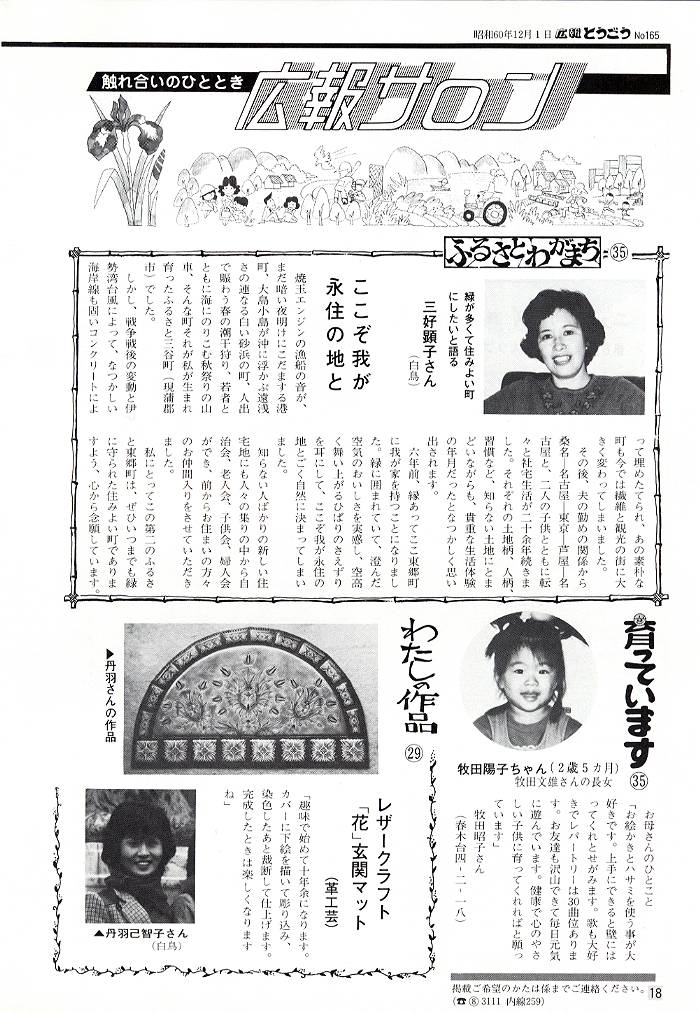 昭和60年12月1日 広報とうごう No165
触れ合いのひととき
広報サロン
ふるさとわがまち
㉟
緑が多くて住みよい町
にしたいと語る
三好顕子さん
(白鳥)
ここぞ我が
永住の地と
焼玉エンジンの漁船の音が、
まだ暗い夜明けにこだまする港
町、大島小島が沖に浮かぶ遠浅
さの連なる白い砂浜の町、人出
で賑わう春の潮干狩り、若者と
ともに海にのりこむ秋祭りの山
車、そんな町それが私が生まれ
育ったふるさと三谷町(現蒲郡
市)でした。
しかし、戦争戦後の変動と伊
勢湾台風によって、なつかしい
海岸線も固いコンクリートによ
って埋めたてられ、あの素朴な
町も今では繊維と観光の街に大
きく変わってしまいました。
その後、夫の勤めの関係から
桑名―名古屋―東京―芦屋―名
古屋と、二人の子供とともに転
々と社宅生活が二十余年続きま
した。それぞれの土地柄、人柄、
習慣など、知らない土地にとま
どいながらも、貴重な生活体験
の年月だったとなつかしく思い
出されます。
六年前、縁あってここ東郷町
に我が家を持つことになりまし
た。緑に囲まれていて、澄んだ
空気のおいしさを実感し、空高
く舞い上がるひばりのさえずり
を耳にして、ここぞ我が永住の
地とごく自然に決まってしまい
ました。
知らない人ばかりの新しい住
宅地にも人々の集りの中から自
治会、老人会、子供会、婦人会
ができ、前からお住まいの方々
のお仲間入りをさせていただき
ました。
私にとってこの第二のふるさ
と東郷町は、ぜひいつまでも緑
に守られた住みよい町でありま
すよう、心から念願しています。
育っています
㉟
牧田陽子ちゃん(2歳5カ月)
牧田文雄さんの長女
お母さんのひとこと
「お絵かきとハサミを使う事が大
好きです。上手にできると壁には
ってくれとせがみます。歌も大好
きでレパートリーは30曲位ありま
す。お友達も沢山できて毎日元気
に遊んでいます。健康で心のやさ
しい子供に育ってくれればと願っ
ています」
牧田昭子さん
(春木台四-二-一八)
わたしの作品
㉙
▶丹羽さんの作品
レザークラフト
「花」玄関マット
(革工芸)
「趣味で始めて十年余になります。
カバーに下絵を描いて彫り込み、
染色したあと裁断して仕上げます。
完成したときは楽しくなります
ね」
▲丹羽己智子さん
(白鳥)
掲載ご希望のかたは係までご連絡ください。
(☎⑧3111 内線259)
18